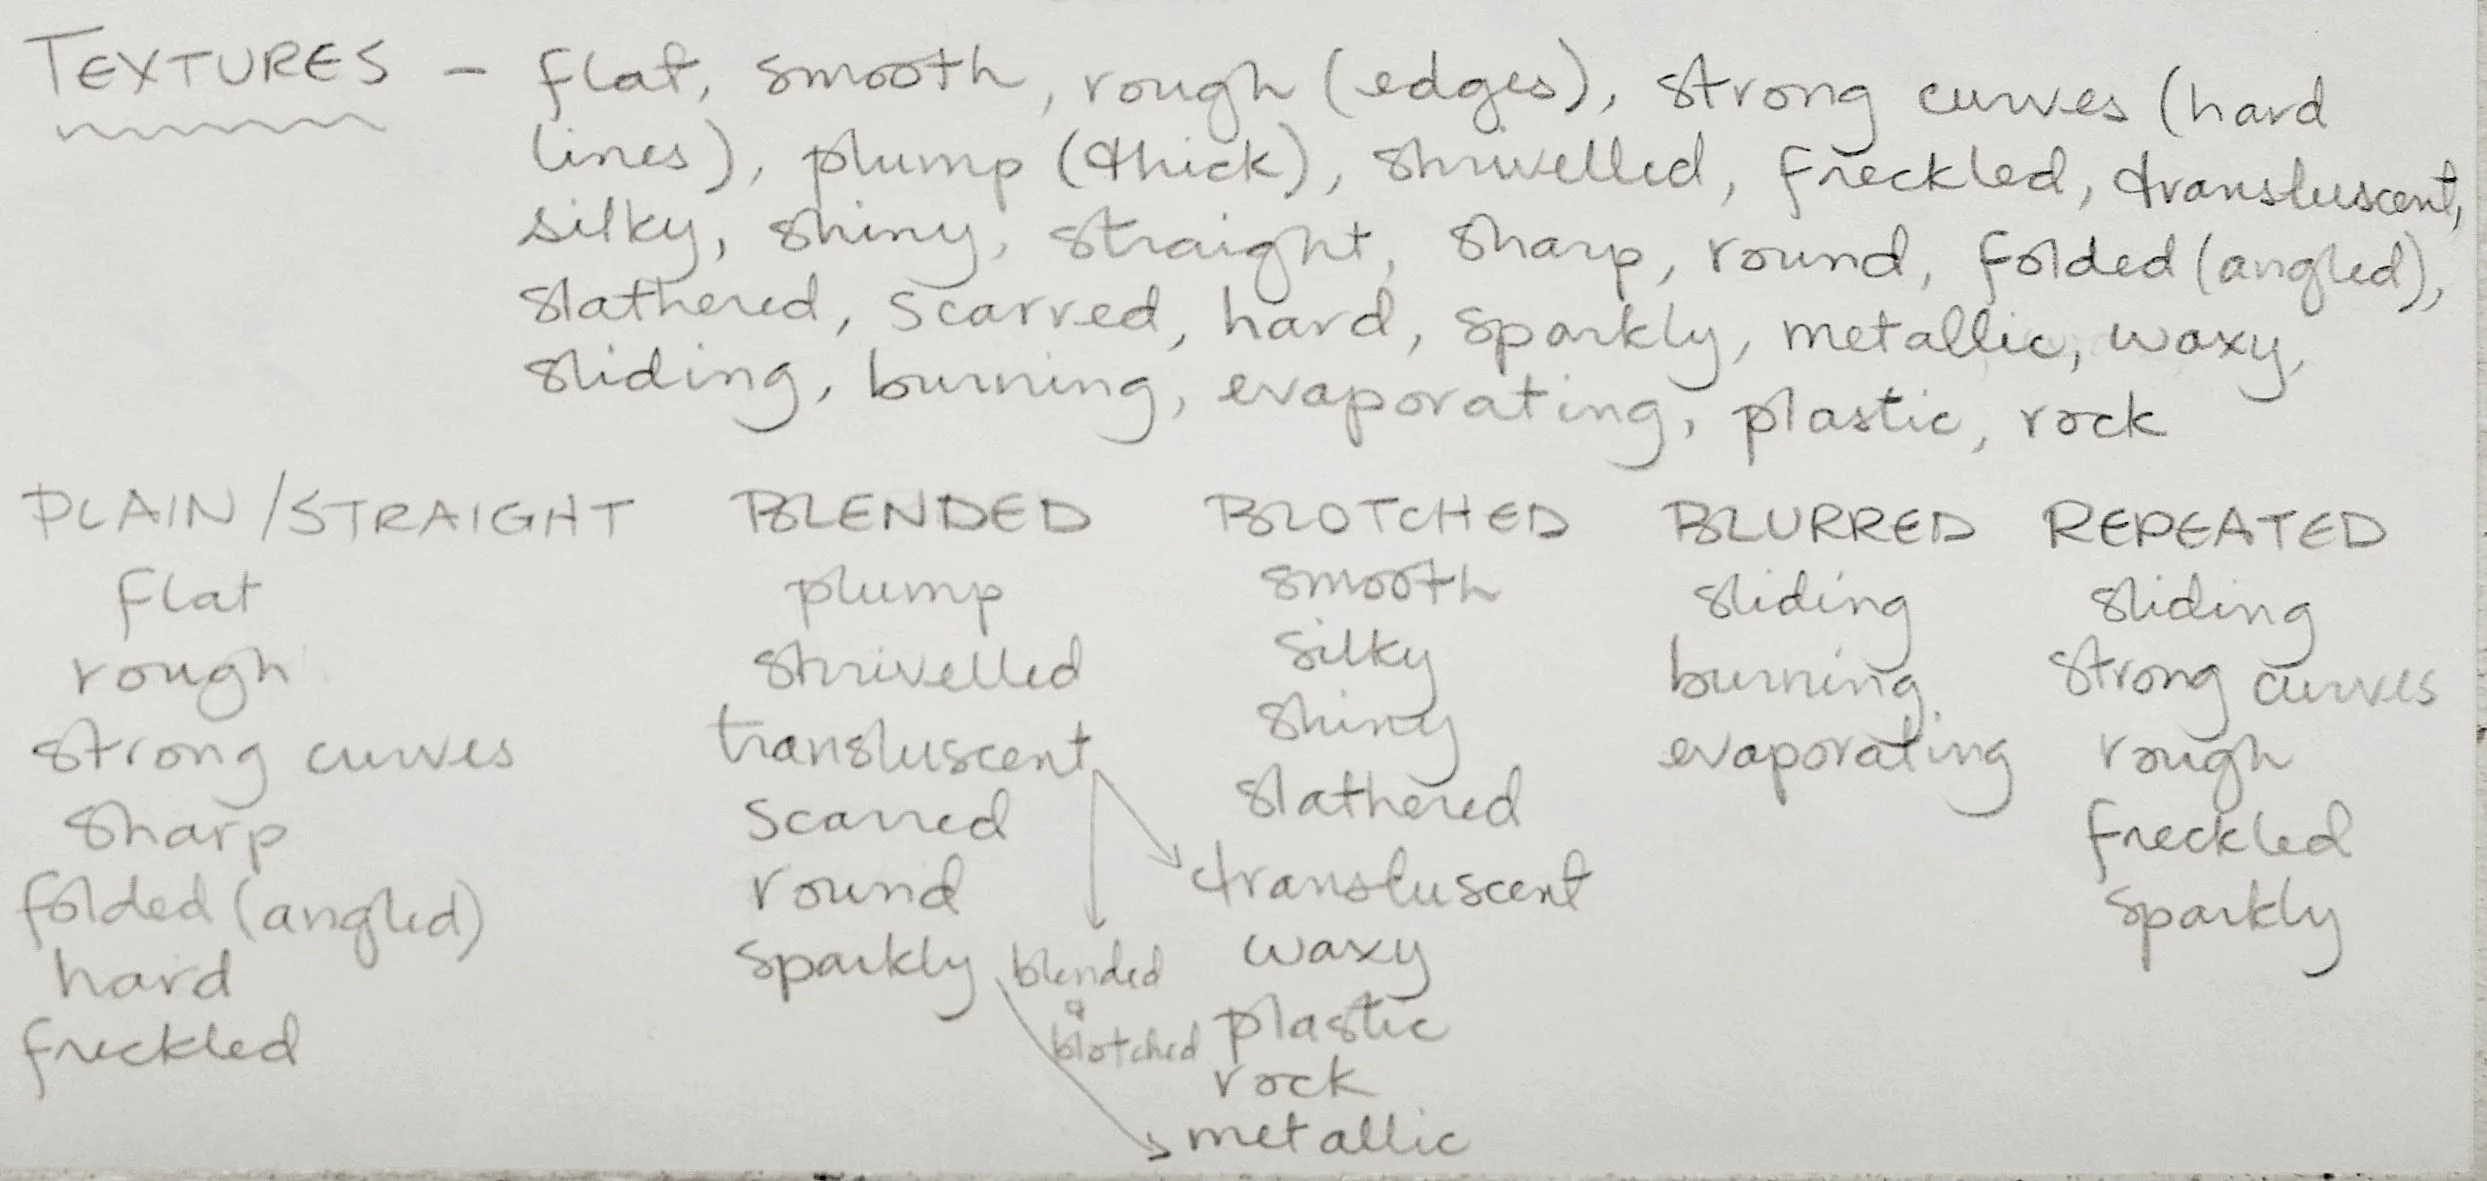 TEXTURES - flat, smooth, rough (edges), strong curves (hard
lines), plump (thick), shrivelled, freckled, transluscent,
silky, shiny, straight, sharp, round, folded (angled),
slathered, scarred, hard, sparkly, metallic, waxy,
sliding, burning, evaporating, plastic, rock
PLAIN/STRAIGHT
flat
rough
strong curves
sharp
folded (angled)
hard
freckled
BLENDED
plump
shrivelled
transluscent
scarred
round
sparkly
blended
&
blotched
BLOTCHED
smooth
silky
shiny
slathered
transluscent
waxy
plastic
rock
metallic
BLURRED
sliding
burning
evaporating
REPEATED
sliding
strong curves
rough
freckled
sparkly